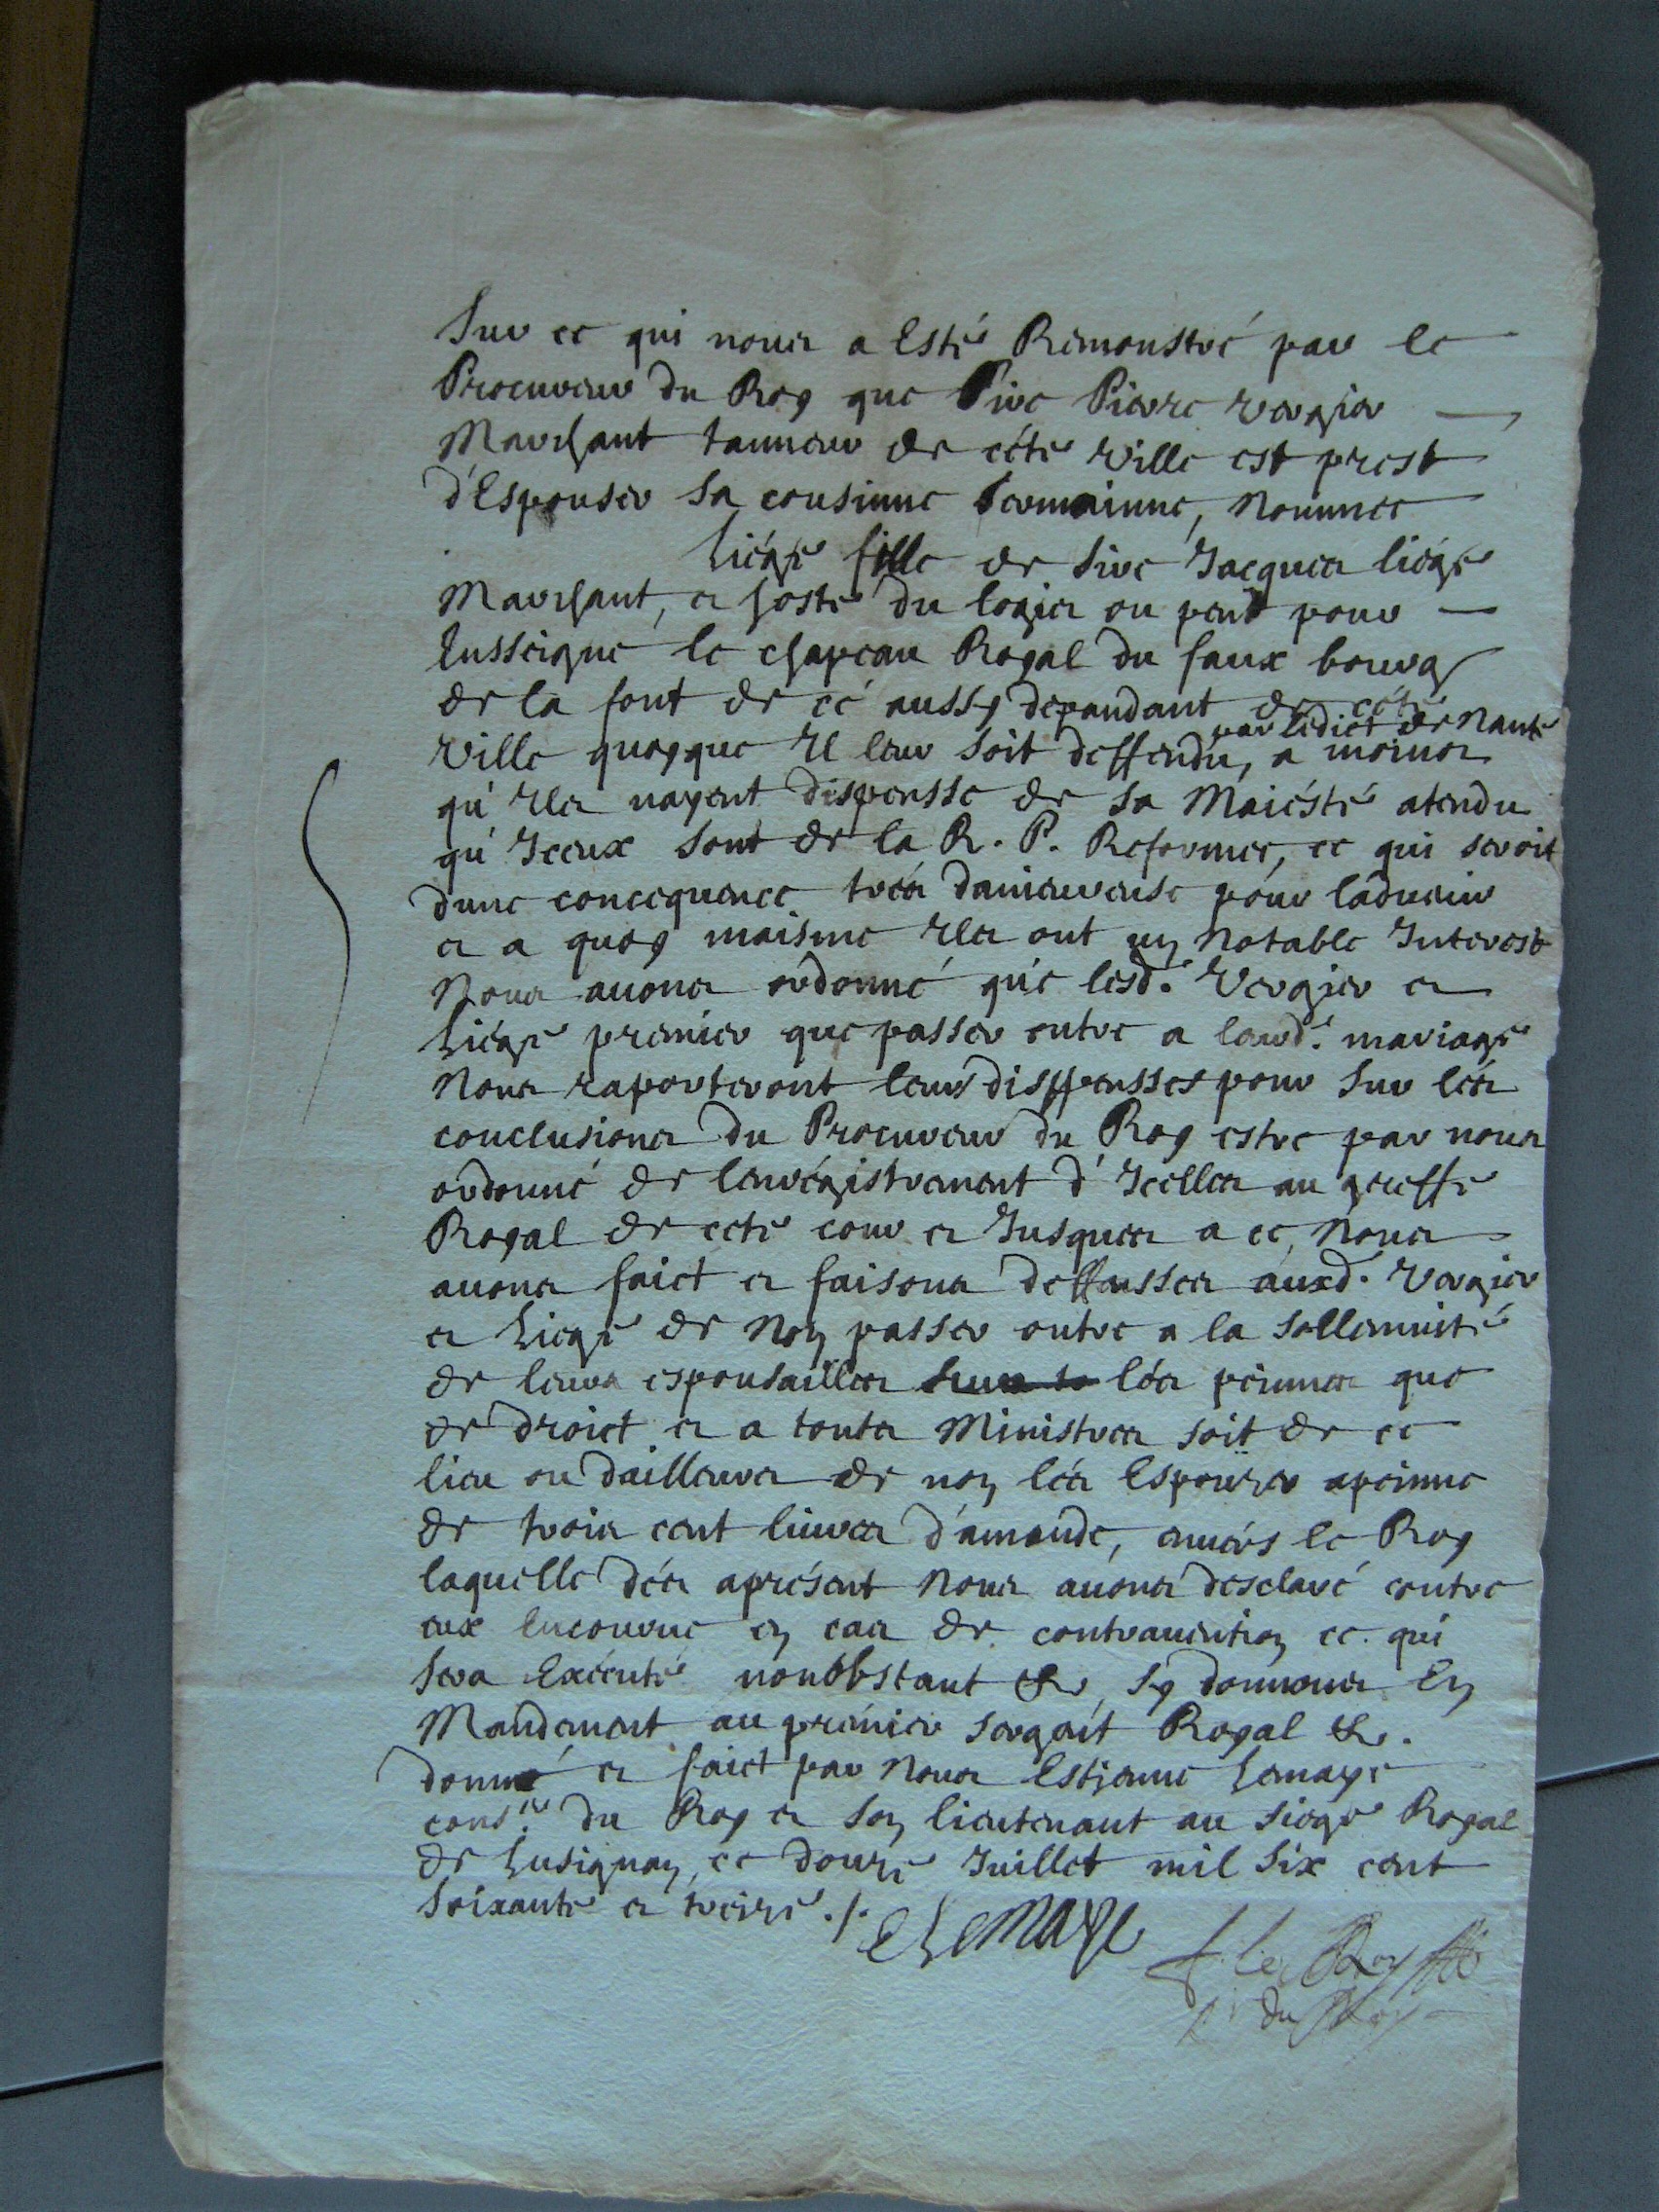 Sur ce qui nous a Esté Remonstré par le
Procureur du Roy que Sire Pierre Vergier
Marchant tanneur de céte Ville est prest
d'Espouser sa cousinne Germainne, Nommee
Liége fille de Sire Jacques liége
Marchant, et hoste du logis ou pend pour
Ensseigne le chapeau Royal du faux bourg
de la font de cé aussy depandant de céte
par ledict de Nante
Ville quoyque Il leur soit deffendu, a moins
qu'Ils nayent dispensse de sa Maiésté atendu
qu'Iceux sont de la R. P. Reformee, ce qui seroit
dune concequence trés daniereuse pour laduenir
et a quoy maisme Ils ont un Notable Interest
Nous auons ordonné que lesd. Vergier et
Liége premier que passer outre a leurd. mariage
Nous raporteront leurs dispensses pour sur lés
conclusions du Procureur du Roy estre par nous
ordonné de lenrégistrement d'Icelles au greffe
Royal de cete cour et Jusques a ce, Nous
auons faict et faisons deffensses auxd. Vergier
et Liege de Non passer outre a la sollemnité
de leurs espousailles lés peinnes que
de droict et a touts Ministres soit de ce
lieu ou dailleurs de non lés Espouzer apeinne
de trois cent liures d'amande, enuérs le Roy
laquelle dés aprésent Nous auons desclaré contre
eux Encourue en cas de contrauention ce qui
sera Exécuté nonobstant &c, sy donnons En
Mandement au prémier sergait Royal &c.
donné et faict par Nous Estienne Lemaye
cons.er du Roy et son lieutenant au siege Royal
de Lusignan, ce douze Juillet mil six cent
soixante et treize ./.
E Lemaye
f. le Roy
du Roy